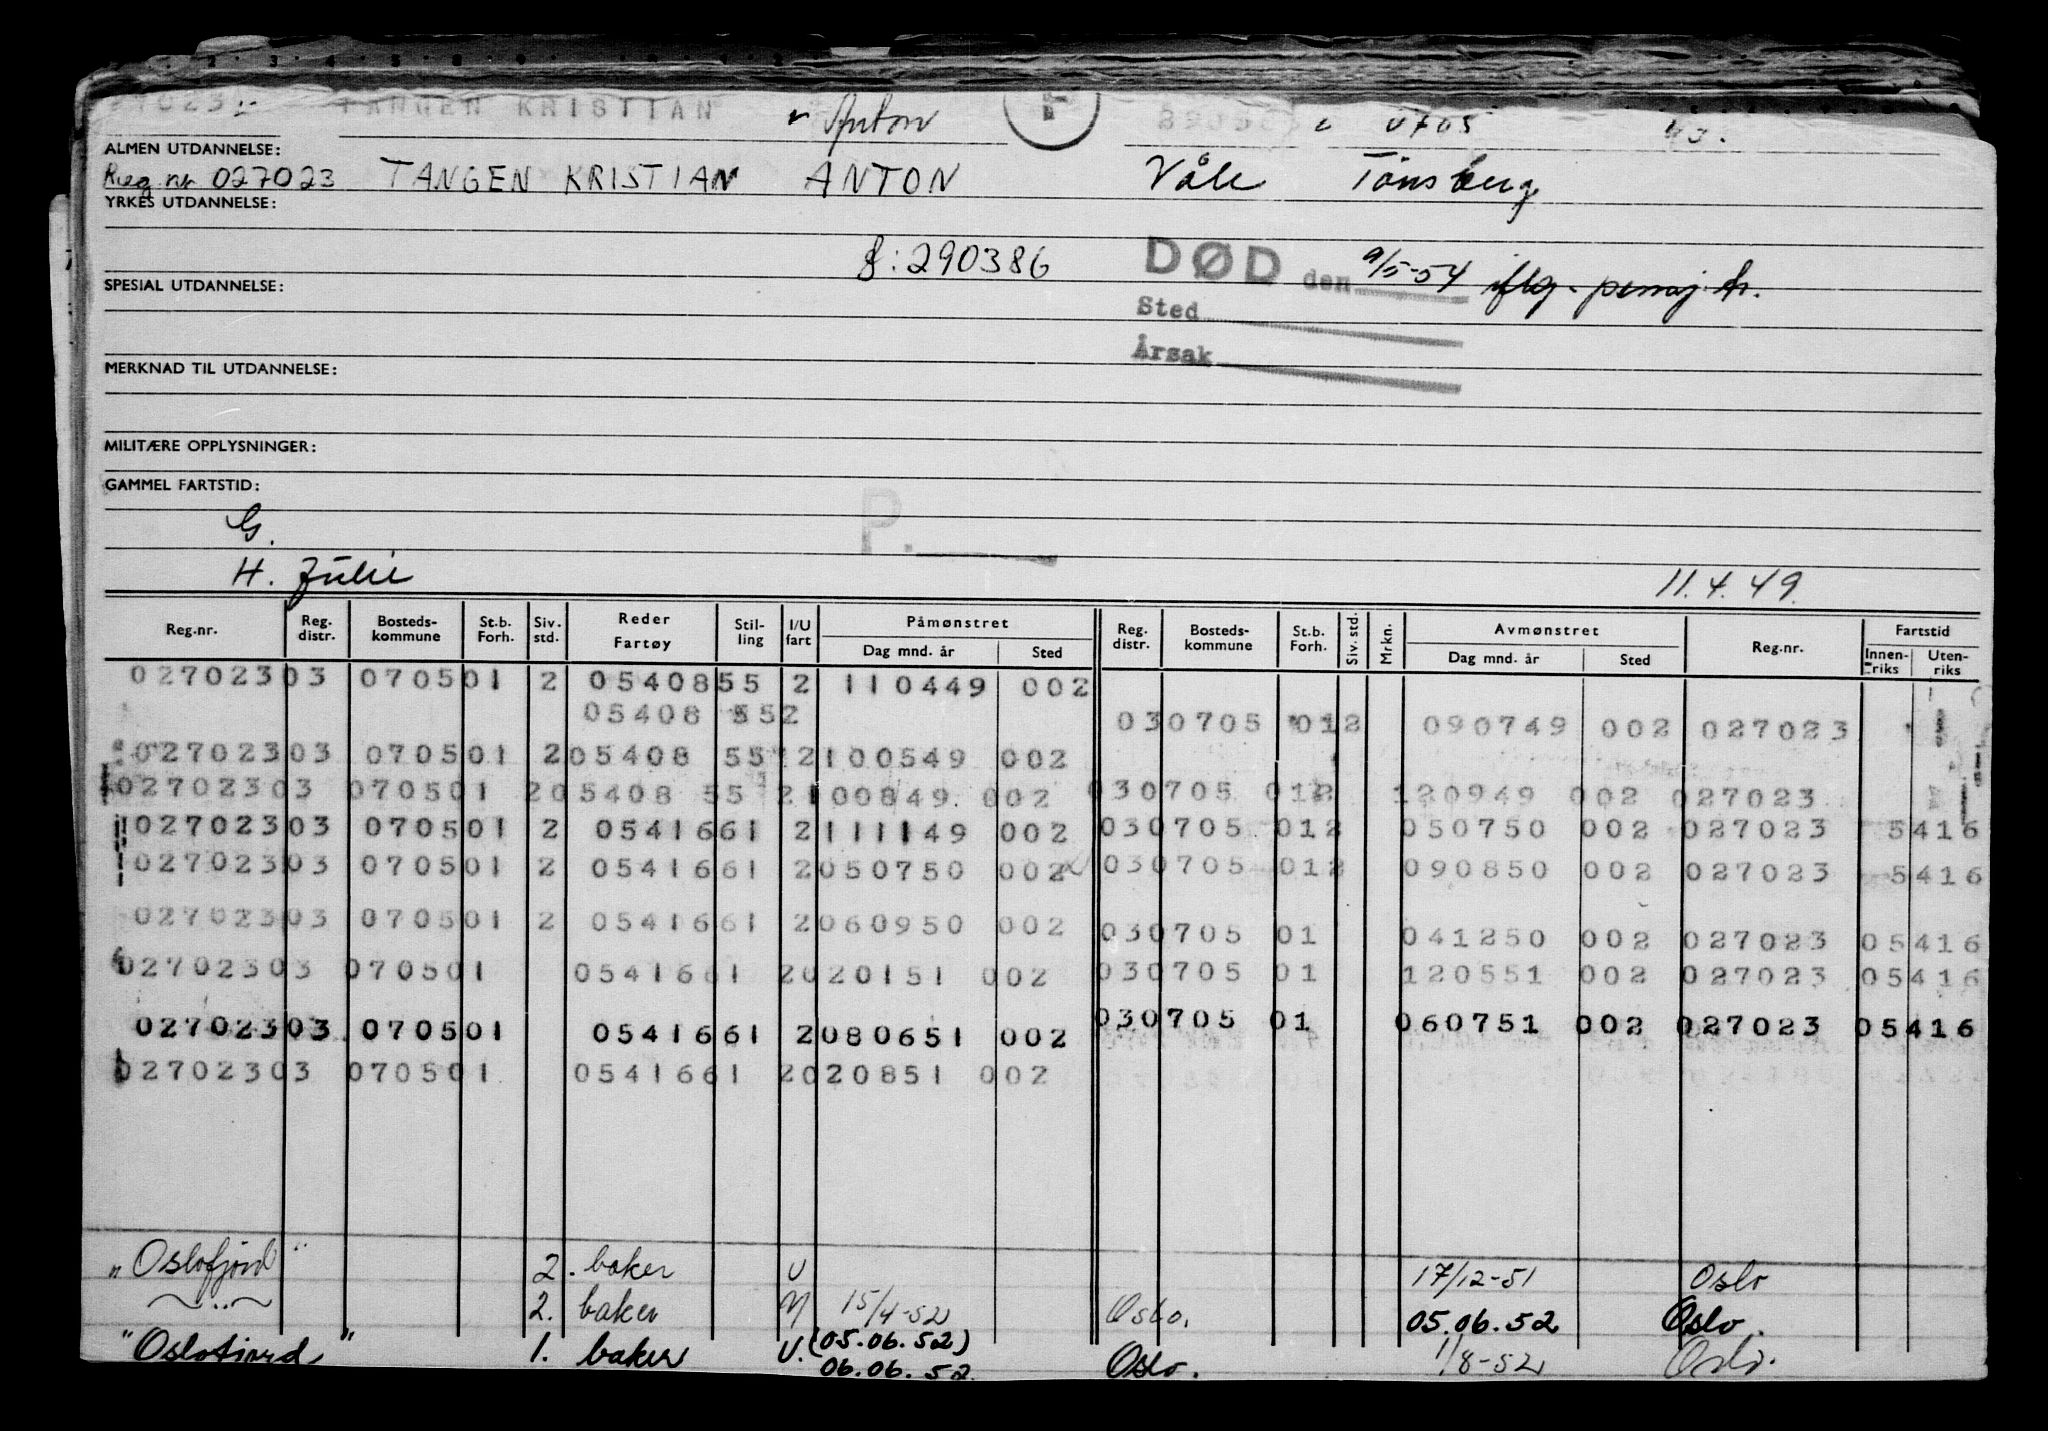 TANGEN KRISTIAN Anton 0705
ALMEN UTDANNELSE:
Reg nr 027023 TANGEN KRISTIAN ANTON Våle Tønsberg
YRKES UTDANNELSE:
f: 290386 DØD den 9/5-54 iflg.
SPESIAL UTDANNELSE: Sted
Årsak
MERKNAD TIL UTDANNELSE:
MILITÆRE OPPLYSNINGER:
GAMMEL FARTSTID: P.
G.
H. Julie 11.4.49.
Reg.nr. Reg. distr. Bosteds-kommune St.b. Forh. Siv. std. Reder Fartøy Stil-ling I/U fart Påmønstret Dag mnd. år Sted Reg. distr. Bosteds-kommune St.b. Forh. Siv. std. Mrkn. Avmønstret Dag mnd. år Sted Reg.nr. Fartstid Innen-riks Uten-riks
02702303 070501 2 0540855 2 110449 002
05408 552 030705 012 090749 002 027023
02702303 070501 205408 55 2100549 002
02702303 070501 205408 55 2100849 002 030705 012 120949 002 027023
02702303 070501 2 0541661 2111149 002 030705 012 050750 002 027023 5416
02702303 070501 2 0541661 2050750 002 030705 012 090850 002 027023 5416
02702303 070501 2 0541661 2060950 002 030705 01 041250 002 027023 05416
02702303 070501 0541661 2020151 002 030705 01 120551 002 027023 05416
02702303 070501 0541661 2080651 002 030705 01 060751 002 027023 05416
02702303 070501 0541661 2020851 002
"Oslofjord" 2. baker U 17/12-51 Oslo
~ " ~ 2. baker U 15/4-52 Oslo. 05.06.52 Oslo.
"Oslofjord" 1. baker U. (05.06.52) 06.06.52 Oslo. 1/8-52 Oslo.